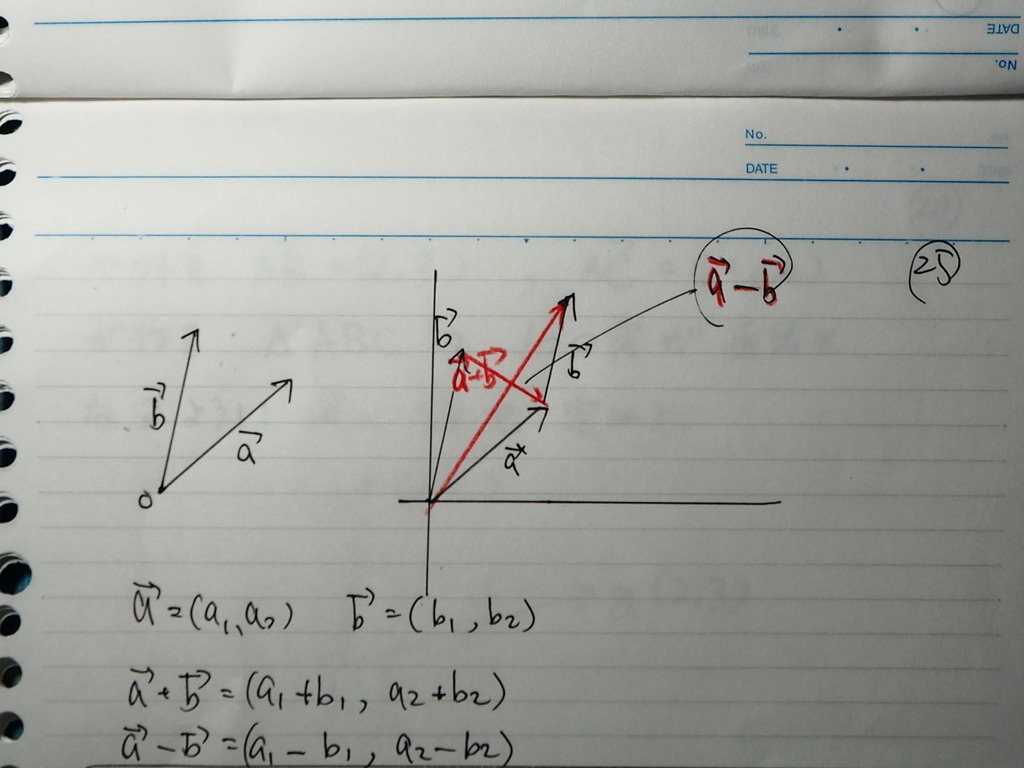 DATE
No.
No.
DATE
a⃗ - b⃗
25
b⃗
a⃗+b⃗
b⃗
b⃗
a⃗
a⃗
0
a⃗ = (a₁, a₂) b⃗ = (b₁, b₂)
a⃗ + b⃗ = (a₁ + b₁, a₂ + b₂)
a⃗ - b⃗ = (a₁ - b₁, a₂ - b₂)